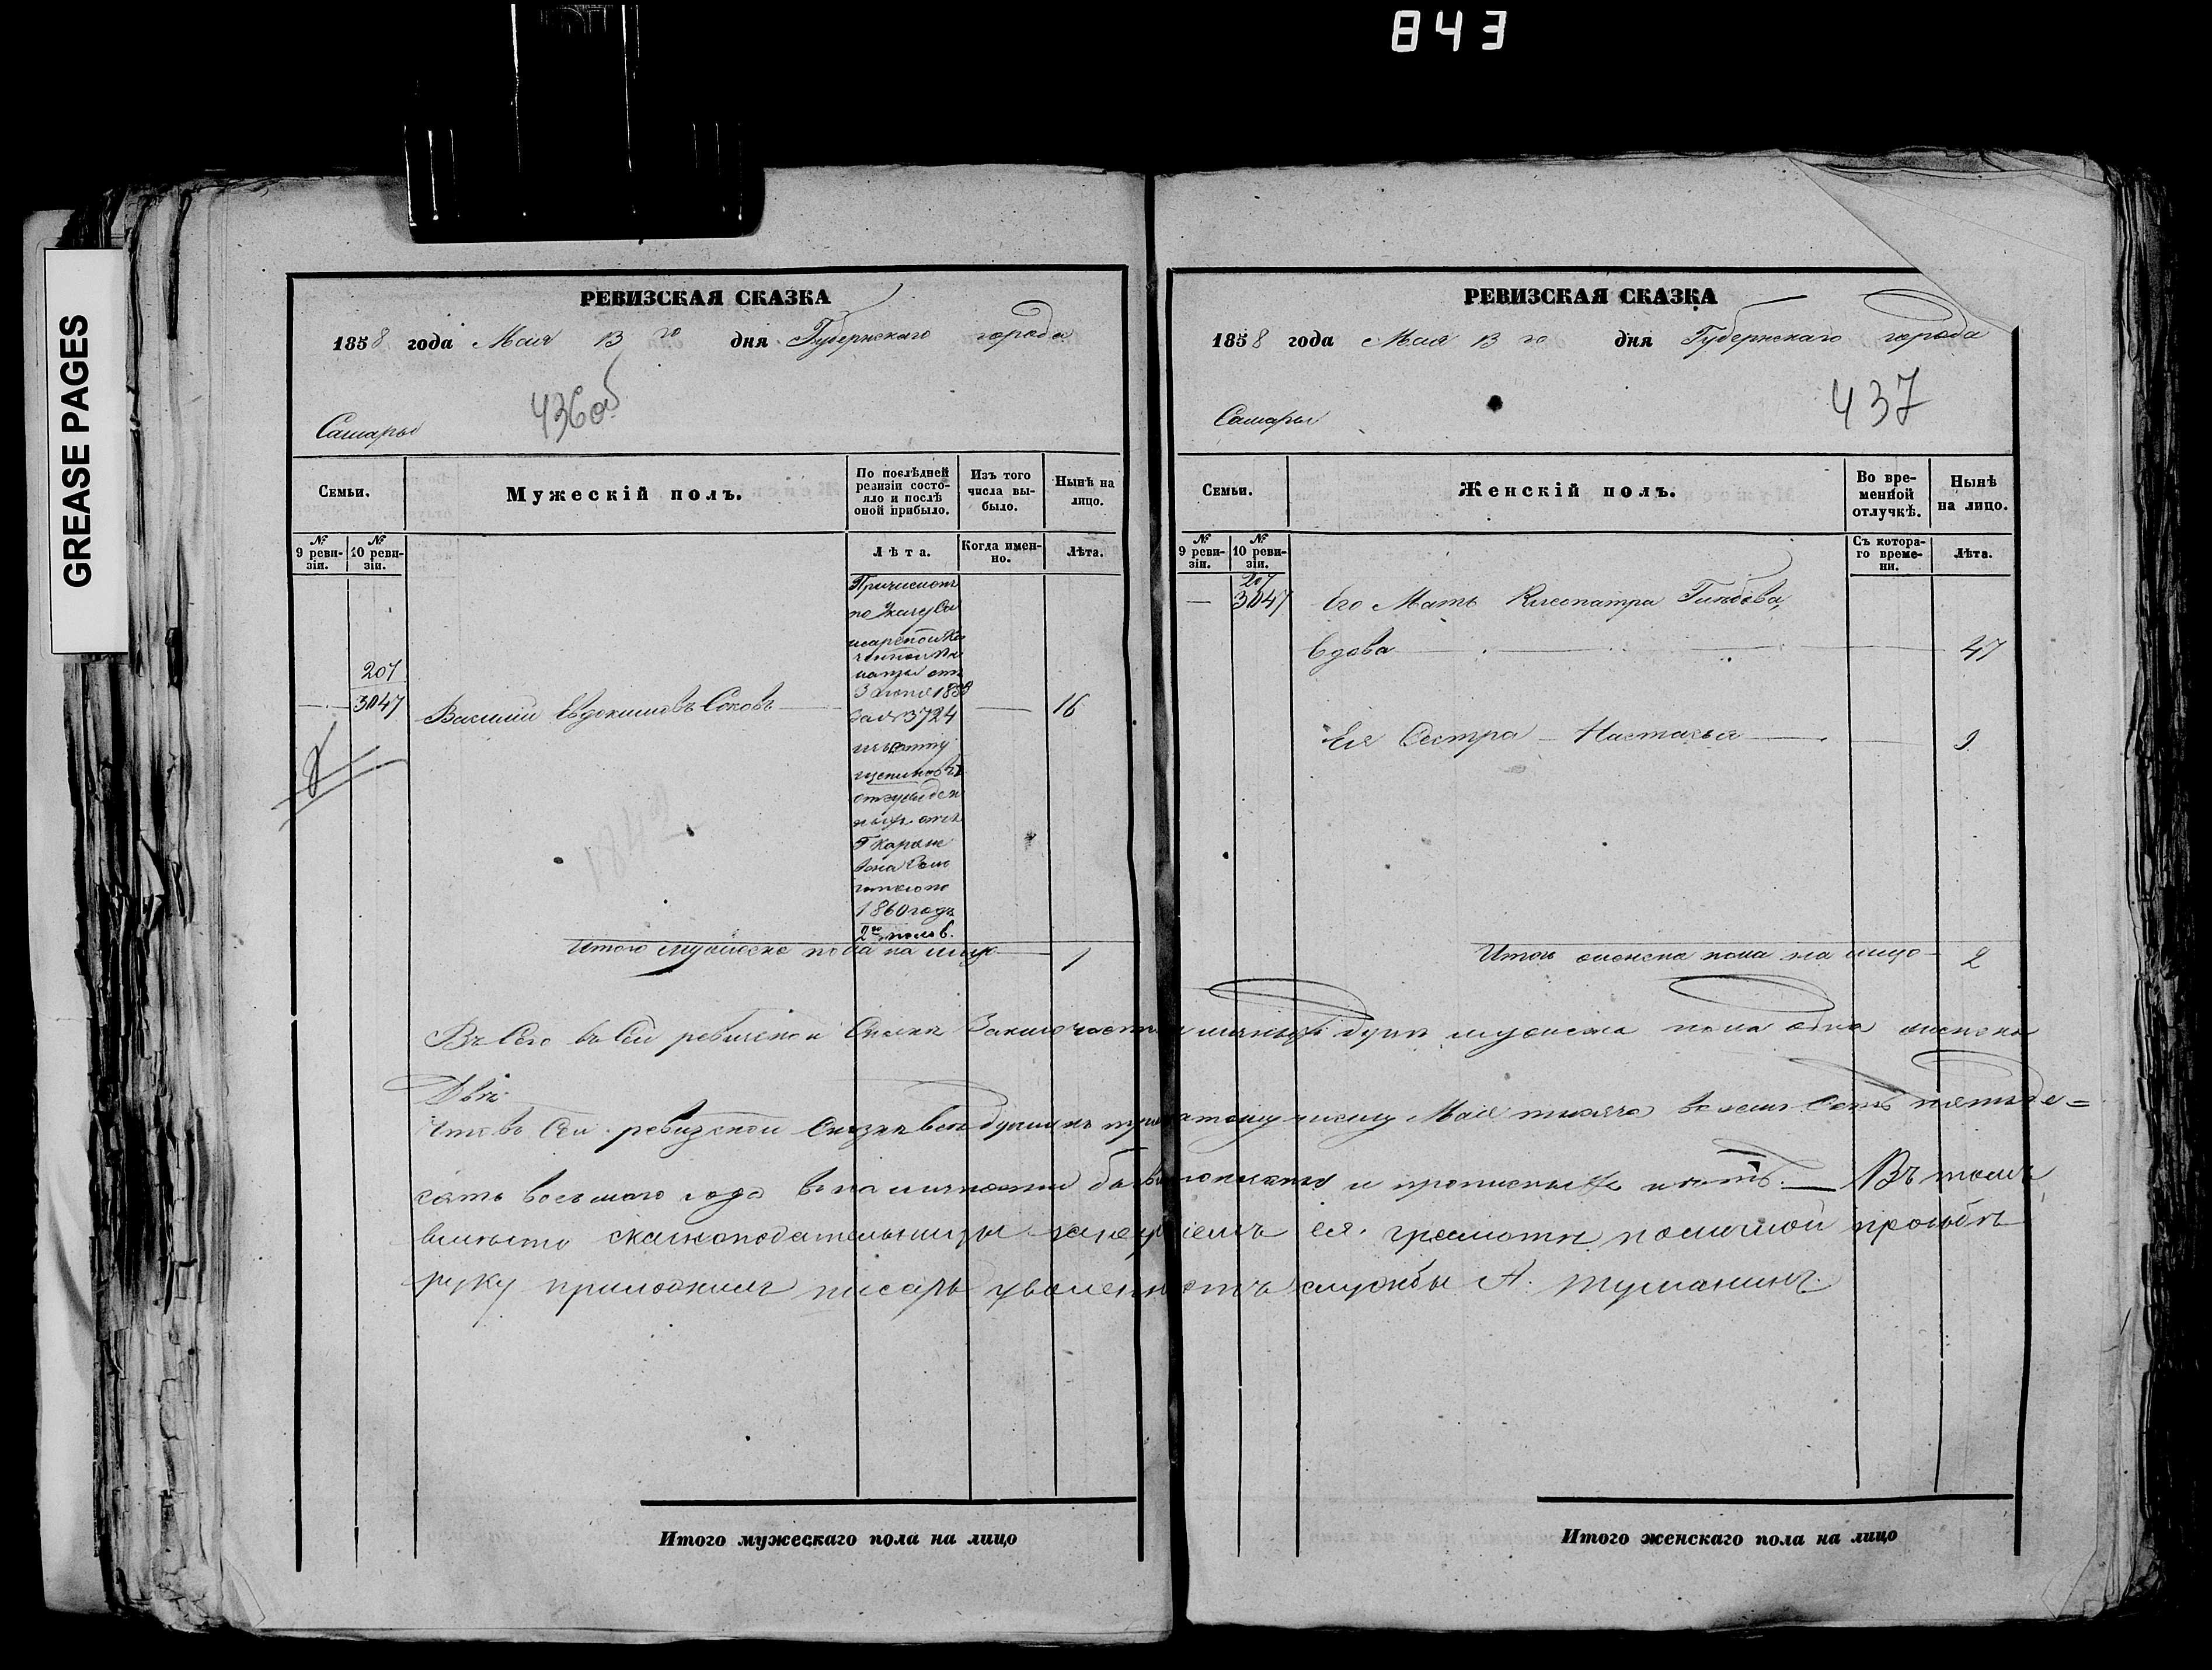 843
GREASE PAGES
РЕВИЗСКАЯ СКАЗКА
1858 года Мая 13 го дня Губернскаго города
436 об
Самары
Семьи.
Мужескій полъ.
По послѣдней ревизіи состояло и послѣ оной прибыло.
Изъ того числа выбыло.
Нынѣ на лицо.
№ 9 ревизіи.
№ 10 ревизіи.
Лѣта.
Когда именно.
Лѣта.
Причисленъ
по Указу Са
марской Ка
зенной Па
латы отъ
3 1858
за № 3724
207
3047
Василій Евдокимовъ Соковъ
16
1860 годъ
2й полов.
Итого мужеска пола на лицо
1
РЕВИЗСКАЯ СКАЗКА
1858 года Мая 13 го дня Губернскаго города
437
Самары
Семьи.
Женскій полъ.
Во временной отлучкѣ.
Нынѣ на лицо.
№ 9 ревизіи.
№ 10 ревизіи.
Съ котораго времени.
Лѣта.
207
3047
Его Мать Клеопатра
Вдова
47
Ея Сестра Настасья
9
Итого женска пола на лицо
2
Всего въ сей ревизской Сказки Заключается наличныхъ душъ мужеска пола одна женска
Двѣ
Что въ Сей ревизской Сказки всѣ души къ числу Мая тысяча восемь Сотъ пятьде=
сять восьмаго года въ наличности показаны и прописныхъ нѣтъ. Въ томъ
вмѣсто сказкоподательницы ея грамотѣ по личной прозьбѣ
руку приложилъ писарь уволенный отъ службы А. Туманинъ.
Итого мужескаго пола на лицо
Итого женскаго пола на лицо